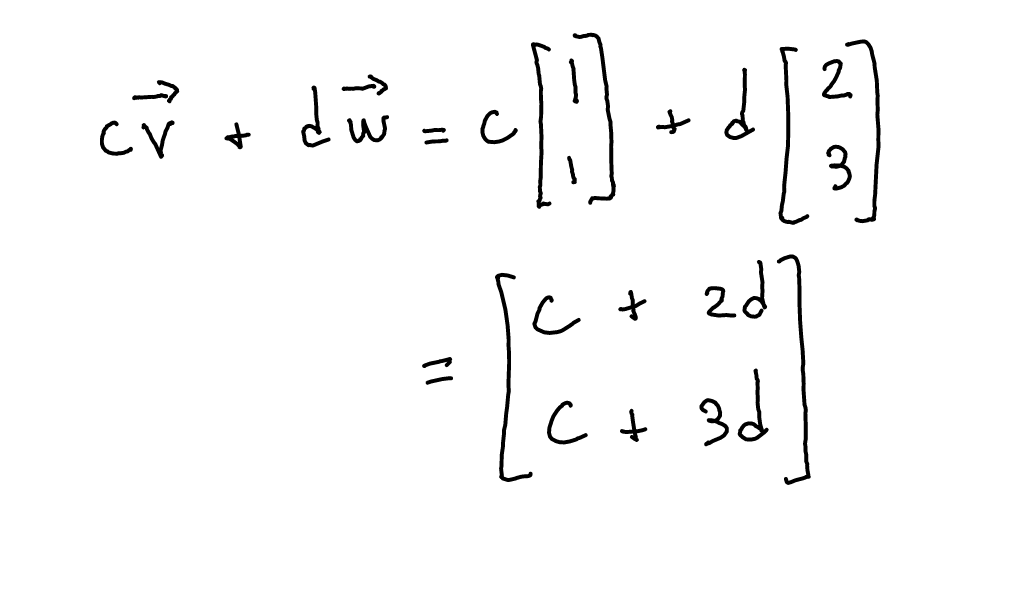 $c\vec{v} + d\vec{w} = c\begin{bmatrix} 1 \\ 1 \end{bmatrix} + d\begin{bmatrix} 2 \\ 3 \end{bmatrix}$
$= \begin{bmatrix} c + 2d \\ c + 3d \end{bmatrix}$